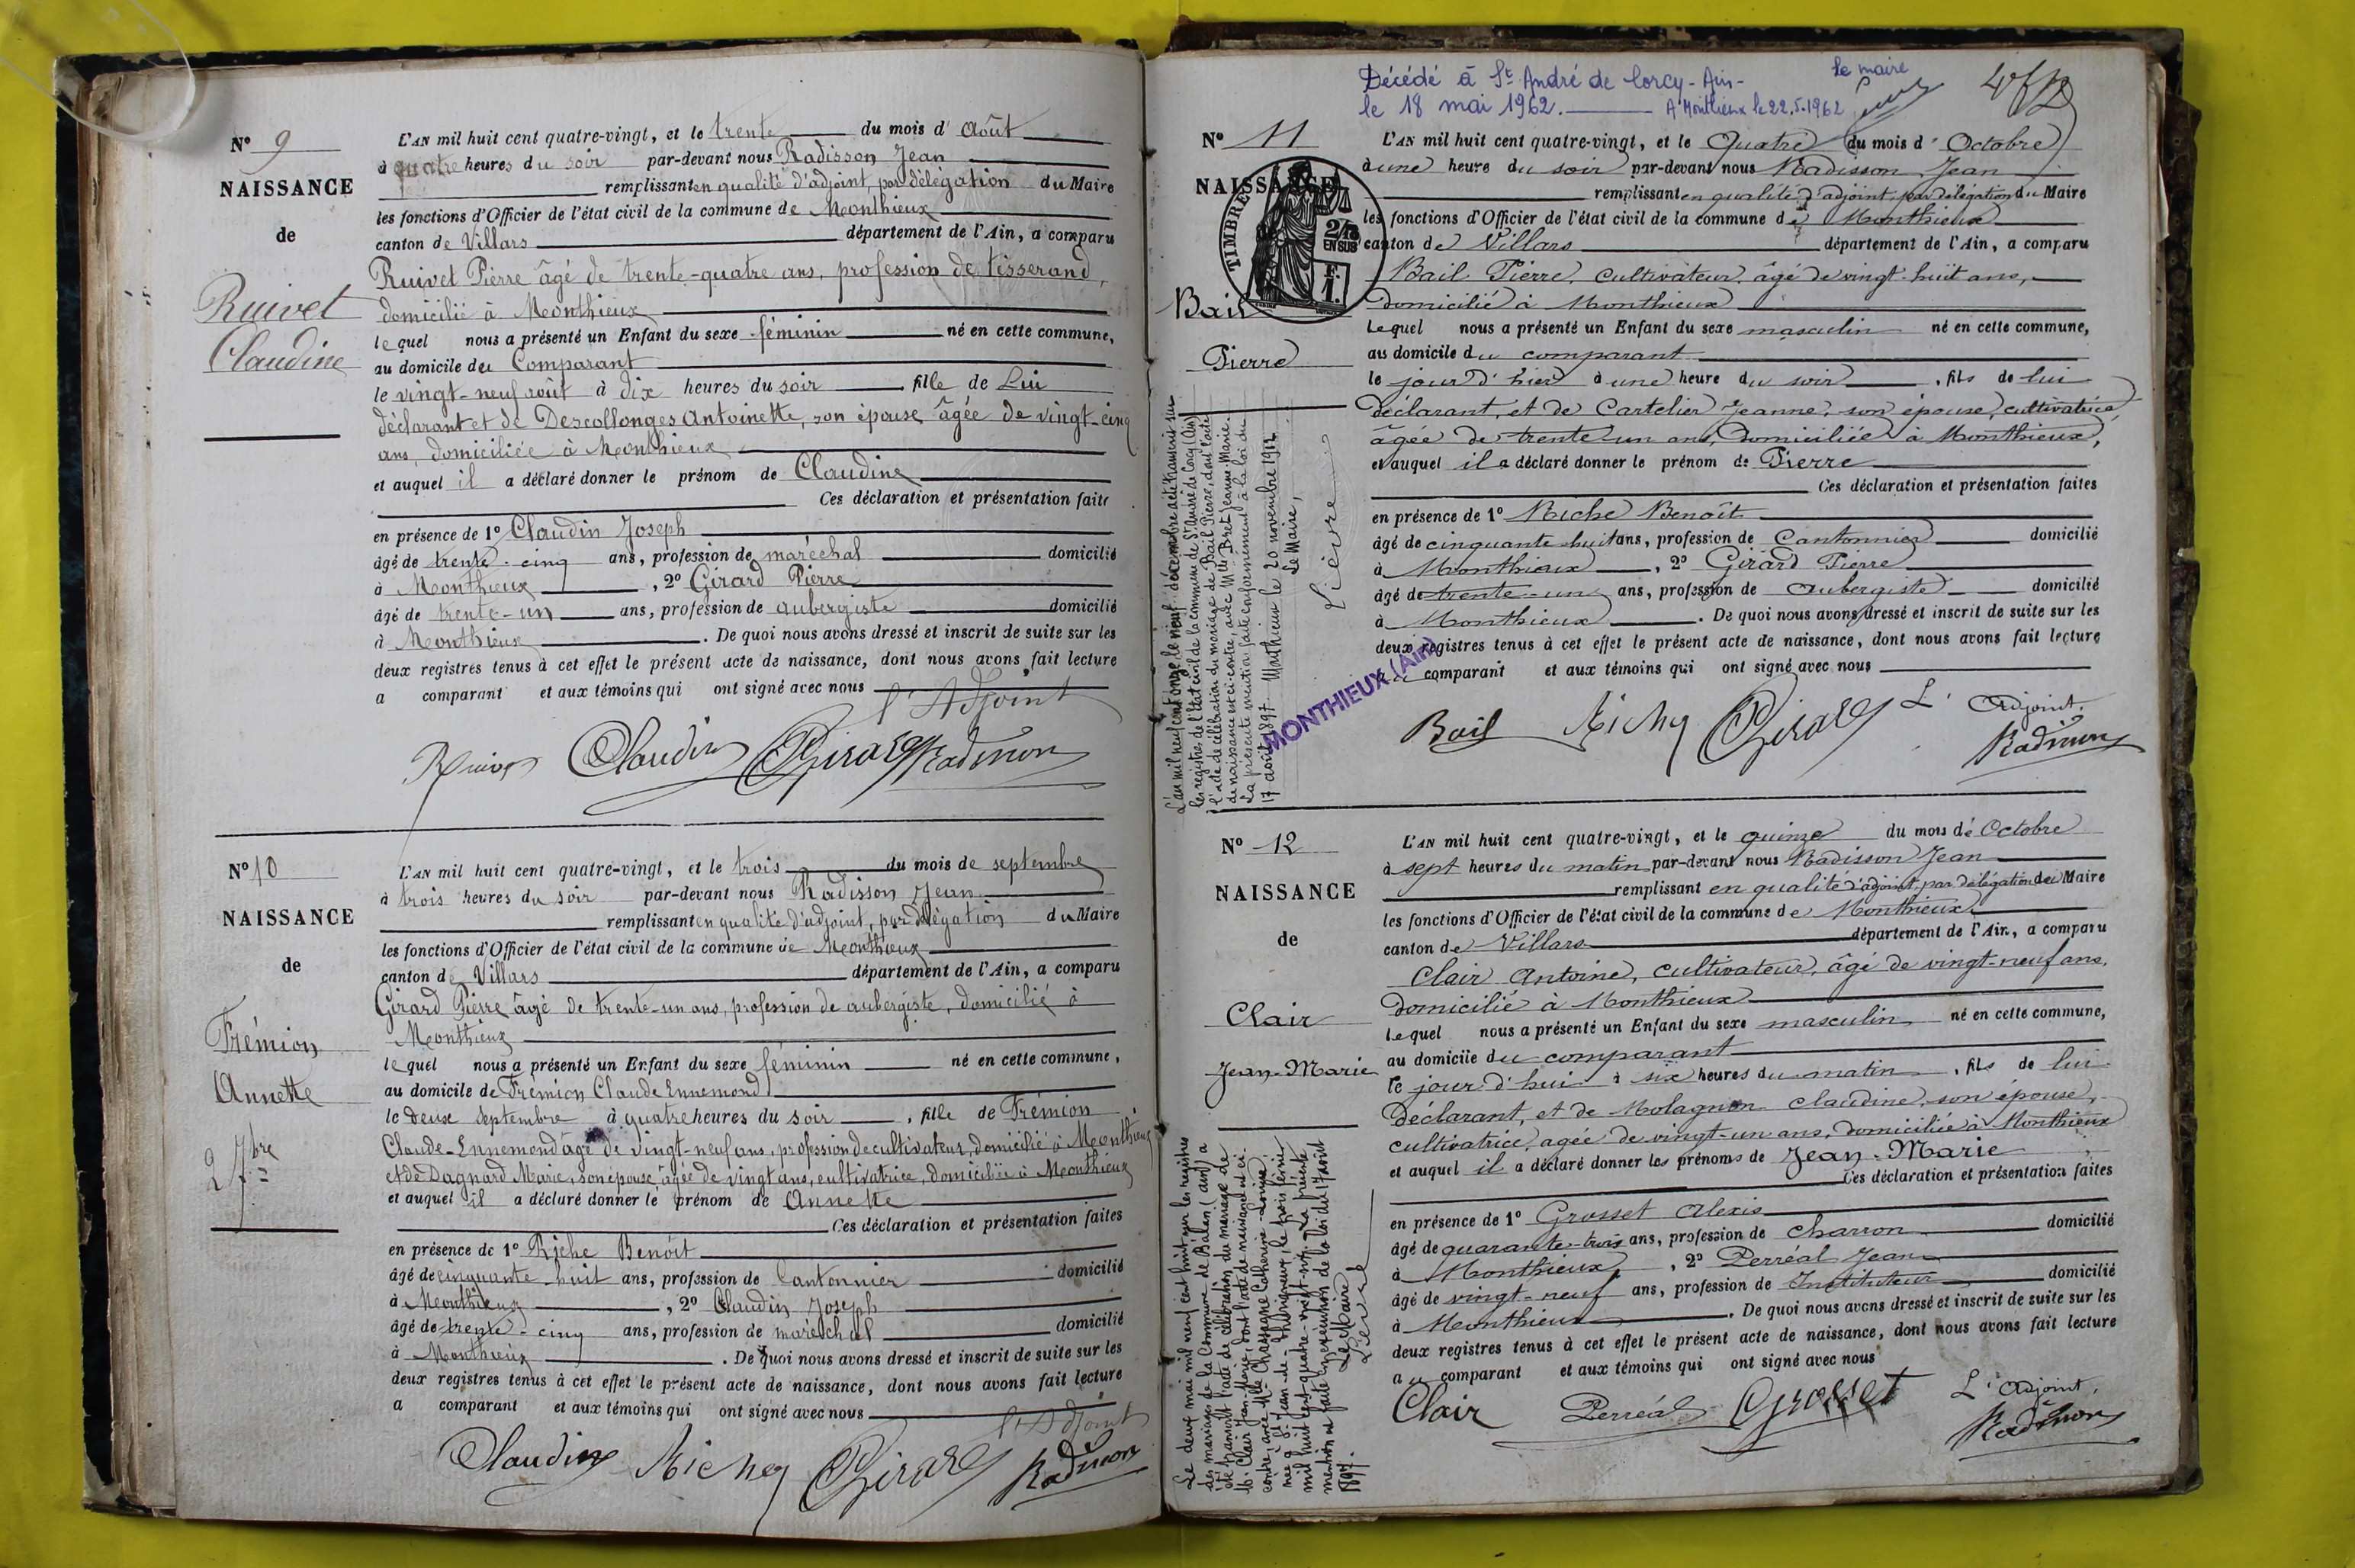 N° 9
NAISSANCE
de
Ruivet
Claudine
L'AN mil huit cent quatre-vingt, et le trente du mois d' Août
à quatre heures du soir par-devant nous Radisson Jean
remplissant en qualité d'adjoint, par délégation du Maire
les fonctions d'Officier de l'état civil de la commune de Monthieux
canton de Villars département de l'Ain, a comparu
Ruivet Pierre âgé de trente-quatre ans, profession de tisserand,
domicilié à Monthieux
lequel nous a présenté un Enfant du sexe féminin né en cette commune,
au domicile du Comparant
le vingt-neuf août à dix heures du soir, fille de Lui
déclarant et de Descollonges Antoinette, son épouse, âgée de vingt-cinq
ans, domiciliée à Monthieux
et auquel il a déclaré donner le prénom de Claudine
Ces déclaration et présentation faites
en présence de 1° Claudin Joseph
âgé de trente-cinq ans, profession de maréchal domicilié
à Monthieux, 2° Girard Pierre
âgé de trente-un ans, profession de aubergiste domicilié
à Monthieux. De quoi nous avons dressé et inscrit de suite sur les
deux registres tenus à cet effet le présent acte de naissance, dont nous avons fait lecture
a comparant et aux témoins qui ont signé avec nous
l'Adjoint
Ruivet Claudin Girard Radisson
N° 10
NAISSANCE
de
Frémion
Annette
2 7bre
L'AN mil huit cent quatre-vingt, et le trois du mois de septembre
à trois heures du soir par-devant nous Radisson Jean
remplissant en qualité d'adjoint, par délégation du Maire
les fonctions d'Officier de l'état civil de la commune de Monthieux
canton de Villars département de l'Ain, a comparu
Girard Pierre âgé de trente-un ans, profession de aubergiste, domicilié à
Monthieux
lequel nous a présenté un Enfant du sexe féminin né en cette commune,
au domicile de Frémion Claude Ennemond
le deux septembre à quatre heures du soir, fille de Frémion
Claude-Ennemond âgé de vingt-neuf ans, profession de cultivateur, domicilié à Monthieux
et de Dagnard Marie, son épouse, âgée de vingt ans, cultivatrice, domiciliée à Monthieux
et auquel il a déclaré donner le prénom de Annette
Ces déclaration et présentation faites
en présence de 1° Riche Benoît
âgé de cinquante-huit ans, profession de Cantonnier domicilié
à Monthieux, 2° Claudin Joseph
âgé de trente-cinq ans, profession de maréchal domicilié
à Monthieux. De quoi nous avons dressé et inscrit de suite sur les
deux registres tenus à cet effet le présent acte de naissance, dont nous avons fait lecture
a comparant et aux témoins qui ont signé avec nous
l'Adjoint
Claudin Riche Girard Radisson
Décédé à St André de Corcy - Ain -
le 18 mai 1962. A Monthieux le 22.5.1962
le maire
N° 11
NAISSANCE
TIMBRE
2/10
EN SUS
Bail
Pierre
L'AN mil huit cent quatre-vingt, et le Quatre du mois d' Octobre
à une heure du soir par-devant nous Radisson Jean
remplissant en qualité d'adjoint, par délégation du Maire
les fonctions d'Officier de l'état civil de la commune de Monthieux
canton de Villars département de l'Ain, a comparu
Bail Pierre, cultivateur, âgé de vingt-huit ans,
domicilié à Monthieux
lequel nous a présenté un Enfant du sexe masculin né en cette commune,
au domicile du comparant
le jour d'hier à une heure du soir, fils de lui
déclarant, et de Cartelier Jeanne, son épouse, cultivatrice,
âgée de trente-un ans, domiciliée à Monthieux,
et auquel il a déclaré donner le prénom de Pierre
Ces déclaration et présentation faites
en présence de 1° Riche Benoît
âgé de cinquante-huit ans, profession de Cantonnier domicilié
à Monthieux, 2° Girard Pierre
âgé de trente-un ans, profession de aubergiste domicilié
à Monthieux. De quoi nous avons dressé et inscrit de suite sur les
deux registres tenus à cet effet le présent acte de naissance, dont nous avons fait lecture
au comparant et aux témoins qui ont signé avec nous
L'Adjoint.
Bail Riche Girard Radisson
L'an mil neuf cent onze le neuf décembre a été transcrit sur
les registres de l'état civil de la commune de St André de Corcy (Ain)
l'acte de célébration du mariage de Bail Pierre, dont l'acte
de naissance est ci-contre, avec Mlle Bret Jeanne-Marie.
La présente mention faite conformément à la loi du
17 août 1897. Monthieux le 20 novembre 1912
Le Maire,
Lièvre
MONTHIEUX (Ain)
N° 12
NAISSANCE
de
Clair
Jean-Marie
L'AN mil huit cent quatre-vingt, et le quinze du mois de Octobre
à sept heures du matin par-devant nous Radisson Jean
remplissant en qualité d'adjoint, par délégation du Maire
les fonctions d'Officier de l'état civil de la commune de Monthieux
canton de Villars département de l'Ain, a comparu
Clair Antoine, cultivateur, âgé de vingt-neuf ans,
domicilié à Monthieux
lequel nous a présenté un Enfant du sexe masculin né en cette commune,
au domicile du comparant
le jour d'hui à six heures du matin, fils de lui
déclarant, et de Molagnon Claudine, son épouse,
cultivatrice, agée de vingt-un ans, domiciliée à Monthieux
et auquel il a déclaré donner les prénoms de Jean-Marie
Ces déclaration et présentation faites
en présence de 1° Grosset Alexis
âgé de quarante-trois ans, profession de charron domicilié
à Monthieux, 2° Perréal Jean
âgé de vingt-neuf ans, profession de Instituteur domicilié
à Monthieux. De quoi nous avons dressé et inscrit de suite sur les
deux registres tenus à cet effet le présent acte de naissance, dont nous avons fait lecture
au comparant et aux témoins qui ont signé avec nous
L'Adjoint,
Clair Perréal Grosset Radisson
Le deux mai mil neuf cent huit sur les registres
des mariages de la Commune de Balan (ain) a
été transcrit l'acte de célébration du mariage de
M. Clair Jean-Marie, dont l'acte de naissance est ci-
contre, avec Mlle Chassagne Catherine-Louise
née à St Jean-de-Thurigneux, le trois février
mil huit cent quatre-vingt-sept. La présente
mention est faite en exécution de la loi du 17 août
1897.
Le Maire
Lièvre